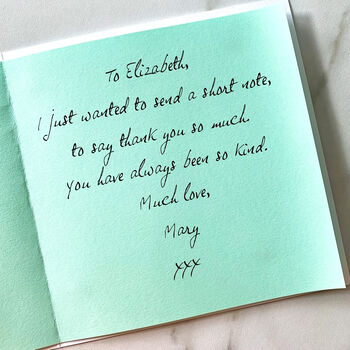 To Elizabeth,
I just wanted to send a short note,
to say thank you so much.
You have always been so kind.
Much love,
Mary
xxx